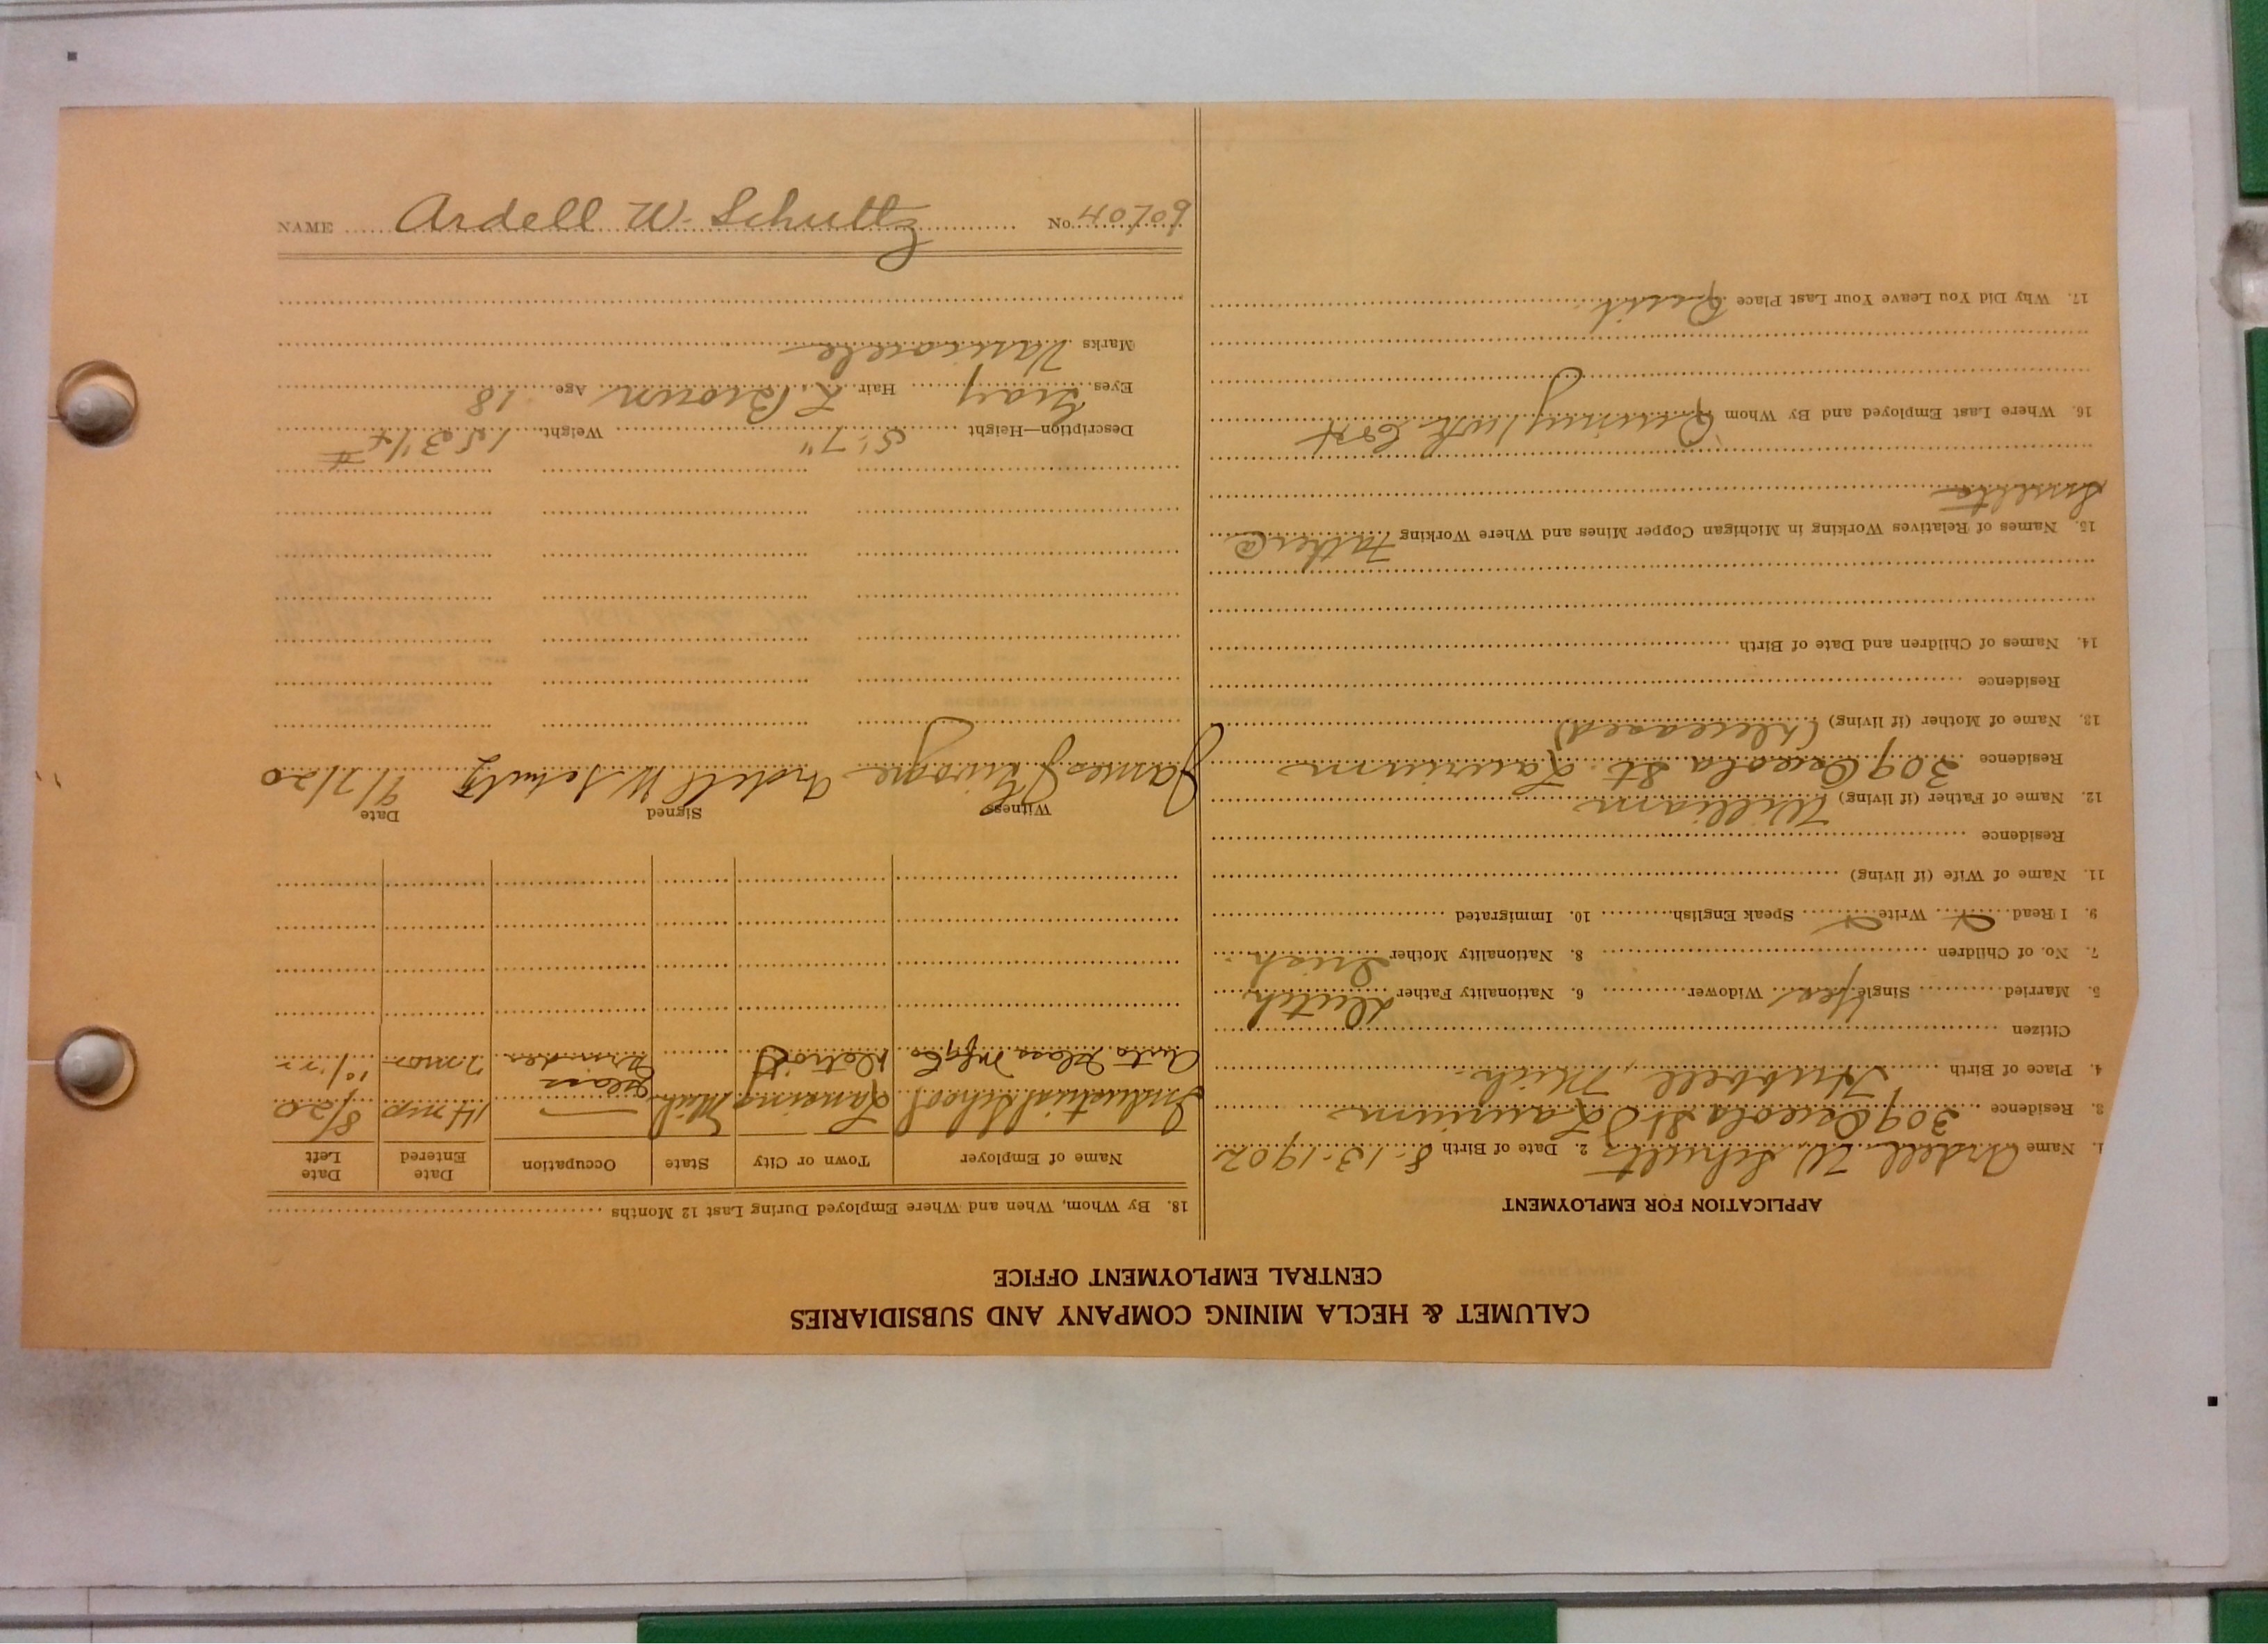 CALUMET & HECLA MINING COMPANY AND SUBSIDIARIES
CENTRAL EMPLOYMENT OFFICE
APPLICATION FOR EMPLOYMENT
1. Name Ardell W. Schultz 2. Date of Birth 8-13-1902
3. Residence 309 Osceola St Laurium
4. Place of Birth Hubbell, Mich.
Citizen
5. Married Single Yes Widower 6. Nationality Father Dutch
7. No. of Children 8. Nationality Mother Irish
9. I Read Write Speak English 10. Immigrated
11. Name of Wife (if living)
Residence
12. Name of Father (if living) William
Residence 309 Osceola St. Laurium
13. Name of Mother (if living) (Deceased)
Residence
14. Names of Children and Date of Birth
15. Names of Relatives Working in Michigan Copper Mines and Where Working Father @
Smelter
16. Where Last Employed and By Whom Quincy
17. Why Did You Leave Your Last Place Quit
18. By Whom, When and Where Employed During Last 12 Months
Name of Employer Town or City State Occupation Date Entered Date Left
Industrial School Lansing Mich. 14 mo 8/20
Auto Glass Mfg Co Detroit Glass Grinder 2 mos 10/22
Witness Signed Date
James Ardell W Schultz 9/7/20
Description—Height 5'-7" Weight 153 1/2 #
Eyes Gray Hair L. Brown Age 18
Marks Varicocele
NAME Ardell W. Schultz No. 40709